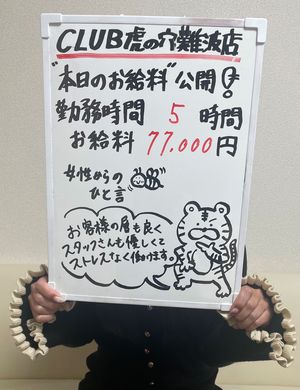 CLUB虎の穴難波店
"本日のお給料"公開!
勤務時間 5 時間
お給料 77,000円
女性からの
ひと言
お客様の層も良く
スタッフさんも優しくて
ストレスなく働けます。